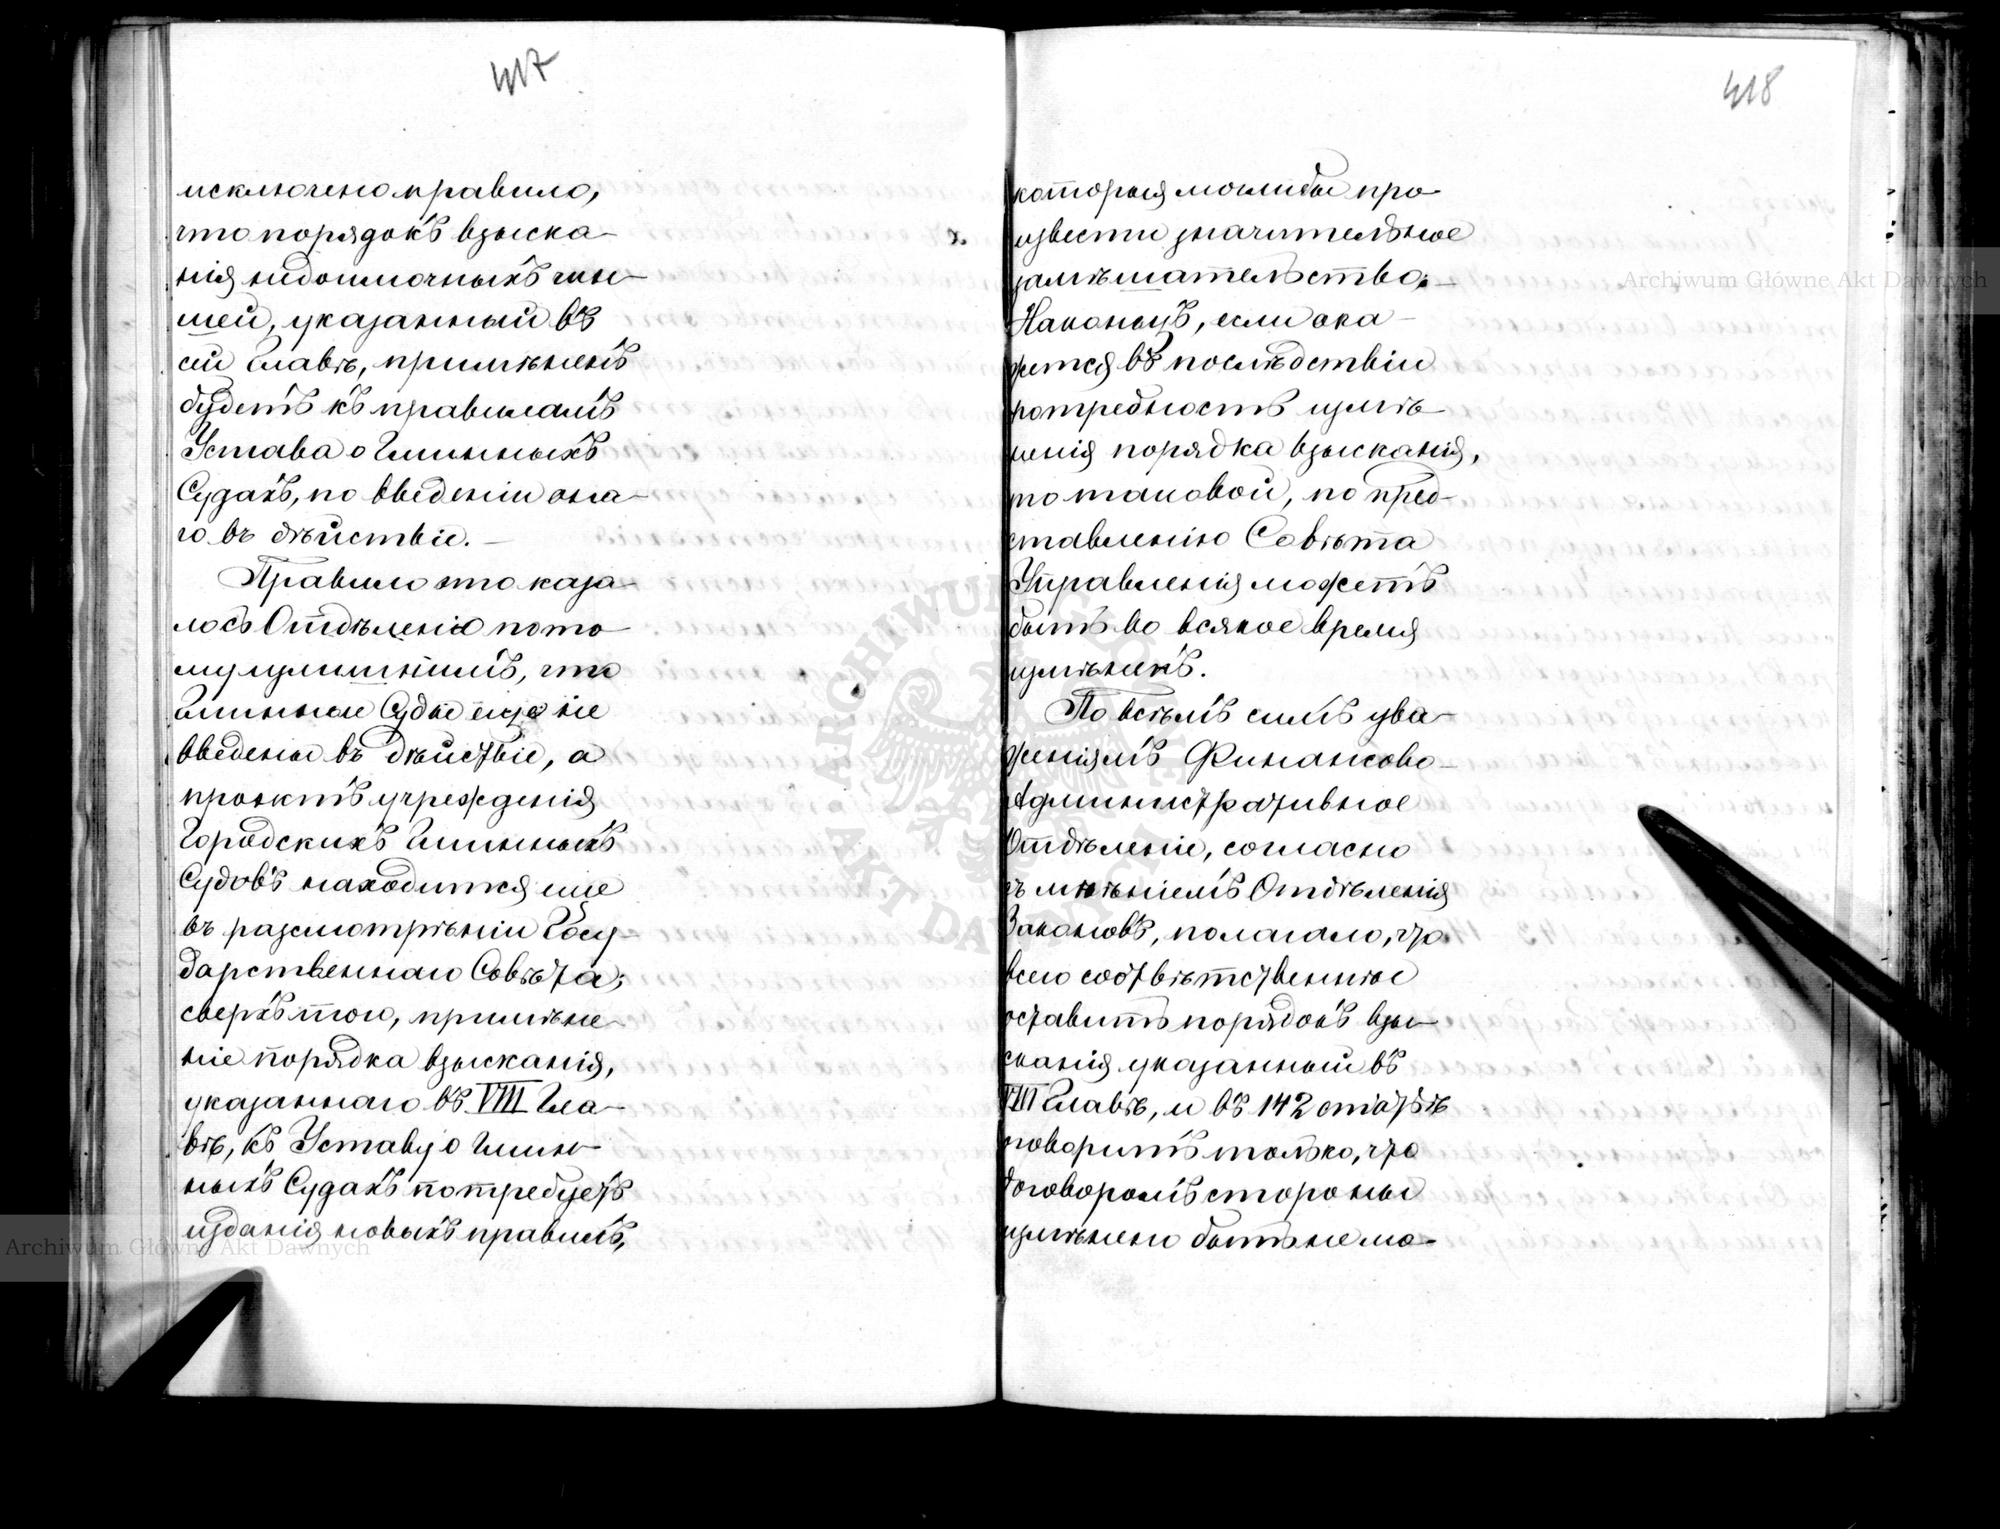 417
исключено правило,
что порядокъ взыска-
нія недоимочныхъ чин-
шей, указанный въ
сей Главѣ, примѣненъ
будетъ къ правиламъ
Устава о Гминныхъ
Судахъ, по введеніи она-
го въ дѣйствіе. —
Правило это каза-
лось Отдѣленію пото-
му излишнимъ, что
Гминные Суды еще не
введены въ дѣйствіе, а
проэктъ учрежденія
Городскихъ Гминныхъ
Судовъ находится еще
въ разсмотрѣніи Госу-
дарственнаго Совѣта;
сверхъ того, примѣне-
ніе порядка взысканія,
указаннаго въ VIII Гла-
вѣ, къ Уставу о Гмин-
ныхъ Судахъ потребуетъ
изданія новыхъ правилъ,
418
которыя моглибы про-
извести значительное
замѣшательство. —
Наконецъ, если ока-
жется въ послѣдствіи
потребность измѣ-
ненія порядка взысканія,
то таковой, по пред-
ставленію Совѣта
Управленія можетъ
быть во всякое время
измѣненъ.
По всѣмъ симъ ува-
женіямъ Финансово-
Административное
Отдѣленіе, согласно
съ мнѣніемъ Отдѣленія
Законовъ, полагало, что
всего соотвѣтственнѣе
оставить порядокъ взы-
сканія указанный въ
VIII Главѣ, и въ 142 статьѣ
оговорить только, что
договоромъ стороны
измѣнено быть не мо-
Archiwum Główne Akt Dawnych
Archiwum Główne Akt Dawnych
ARCHIWUM GŁÓWNE AKT DAWNYCH